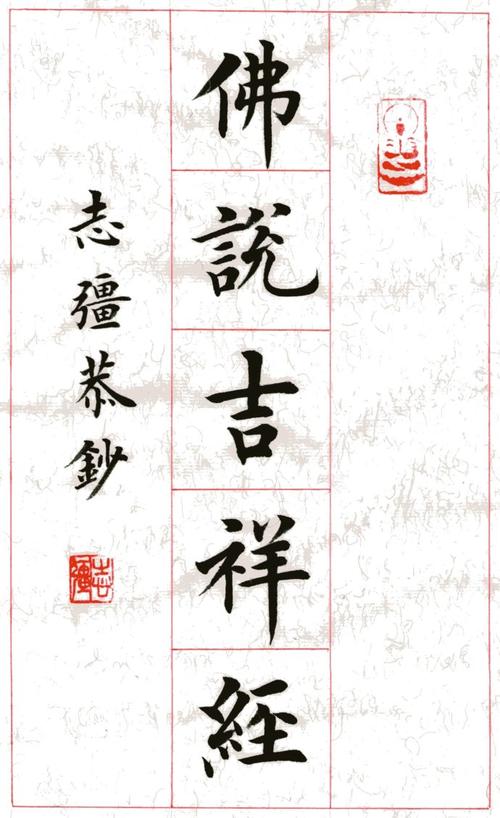 佛說吉祥經
志彊恭鈔
志彊